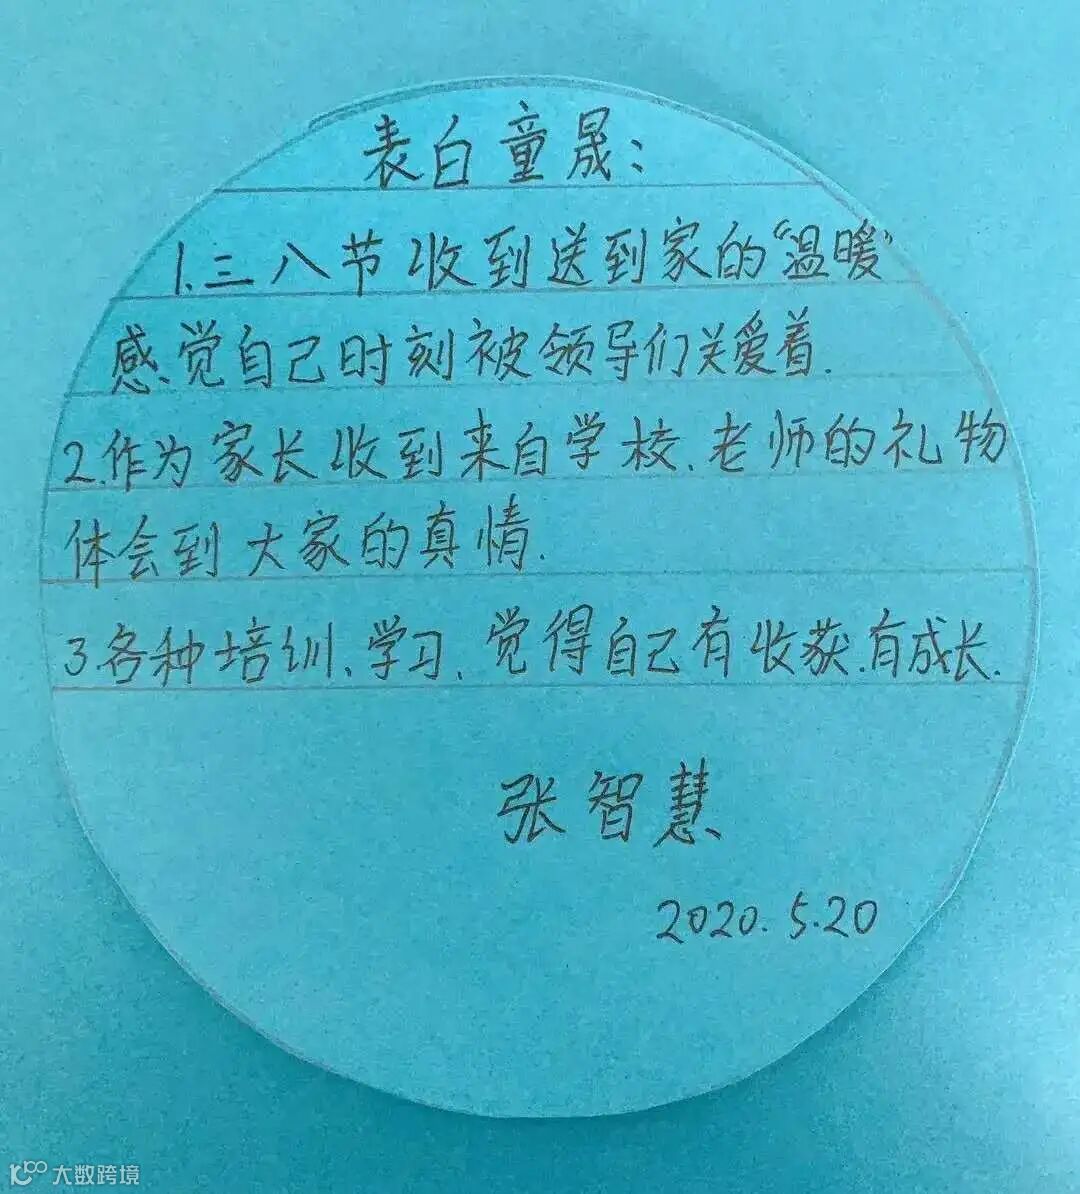 表白童晟:
1.三八节收到送到家的“温暖”
感觉自己时刻被领导们关爱着.
2.作为家长收到来自学校、老师的礼物
体会到大家的真情.
3各种培训、学习、觉得自己有收获.有成长.
张智慧
2020.5.20
大数跨境